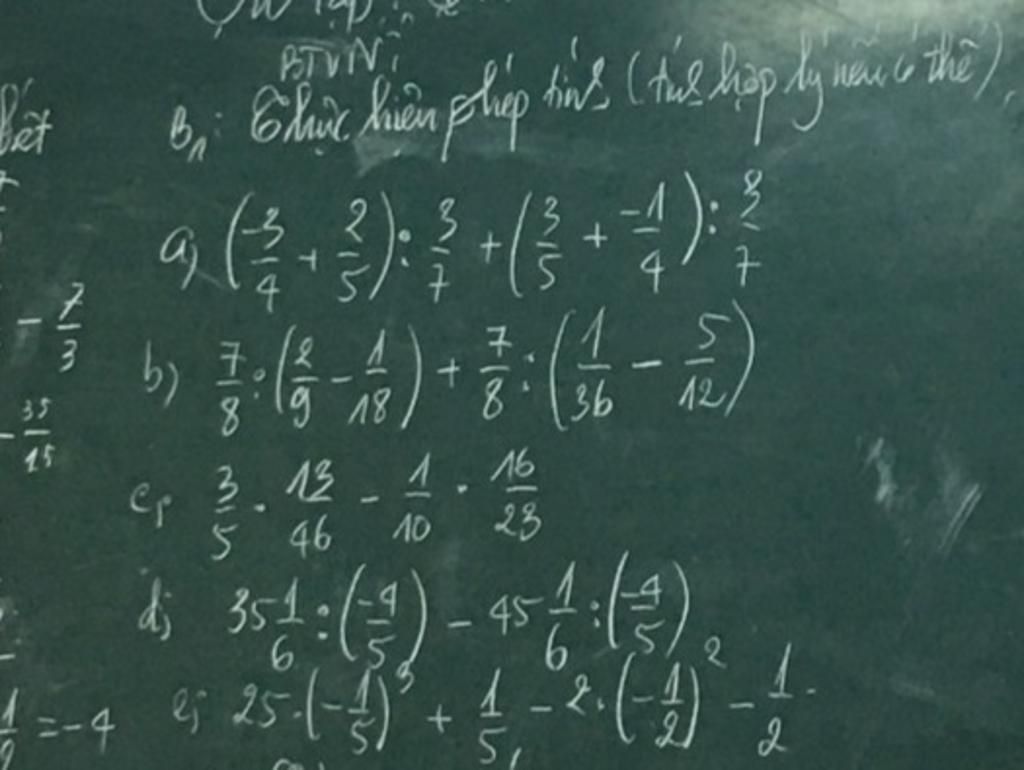 Ôn tập
BTVN:
B₁: Thực hiện phép tính (tính hợp lý nếu có thể)
a) (-3/4 + 2/5) : 3/7 + (3/5 + -1/4) : 3/7
- 7/3
b) 7/8 : (2/9 - 1/18) + 7/8 : (1/36 - 5/12)
- 35/15
c, 3/5 . 13/46 - 1/10 . 16/23
d; 35 1/6 : (-4/5) - 45 1/6 : (-4/5)
= -4
e; 25.(-1/5)³ + 1/5 - 2.(-1/2)² - 1/2.